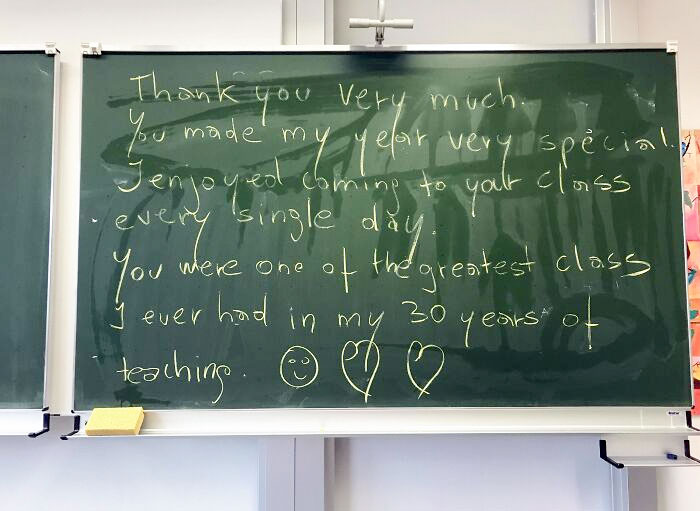 Thank you very much.
You made my year very special.
I enjoyed coming to your class
every single day.
You were one of the greatest class
I ever had in my 30 years of
teaching.